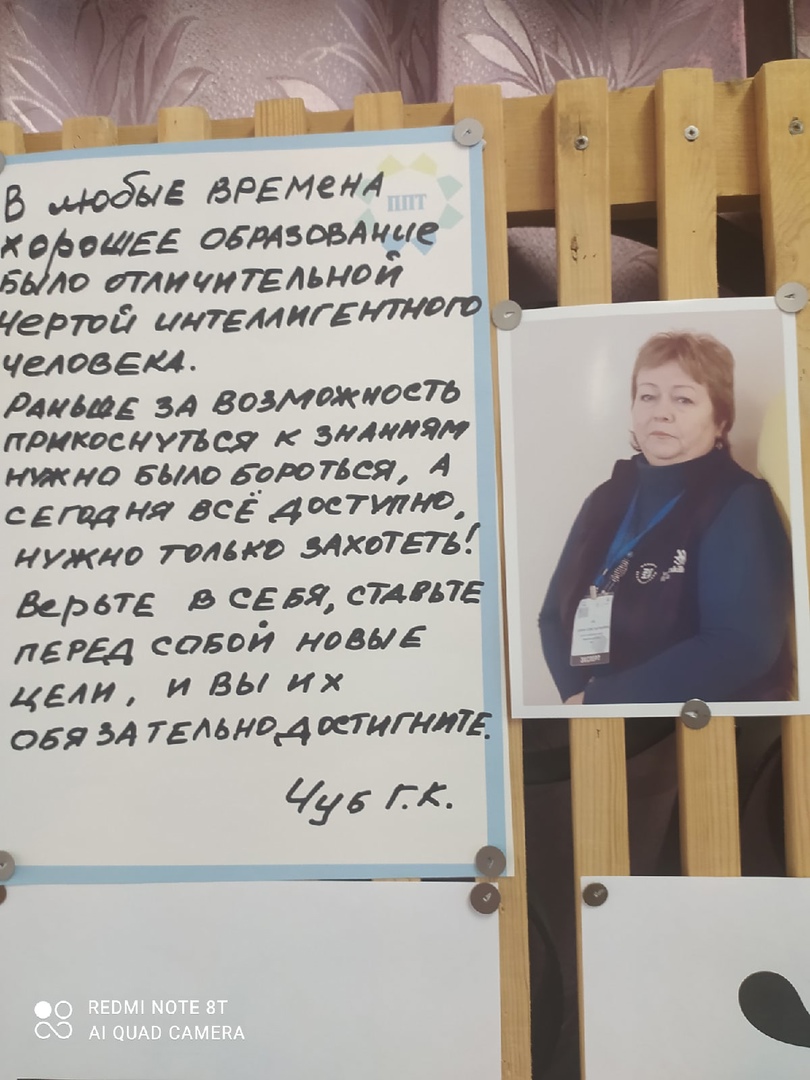 ППТ
В любые времена
хорошее образование
было отличительной
чертой интеллигентного
человека.
Раньше за возможность
прикоснуться к знаниям
нужно было бороться, а
сегодня всё доступно,
нужно только захотеть!
Верьте в себя, ставьте
перед собой новые
цели, и вы их
обязательно достигните.
Чуб Г.К.
ЭКСПЕРТ
REDMI NOTE 8T
AI QUAD CAMERA